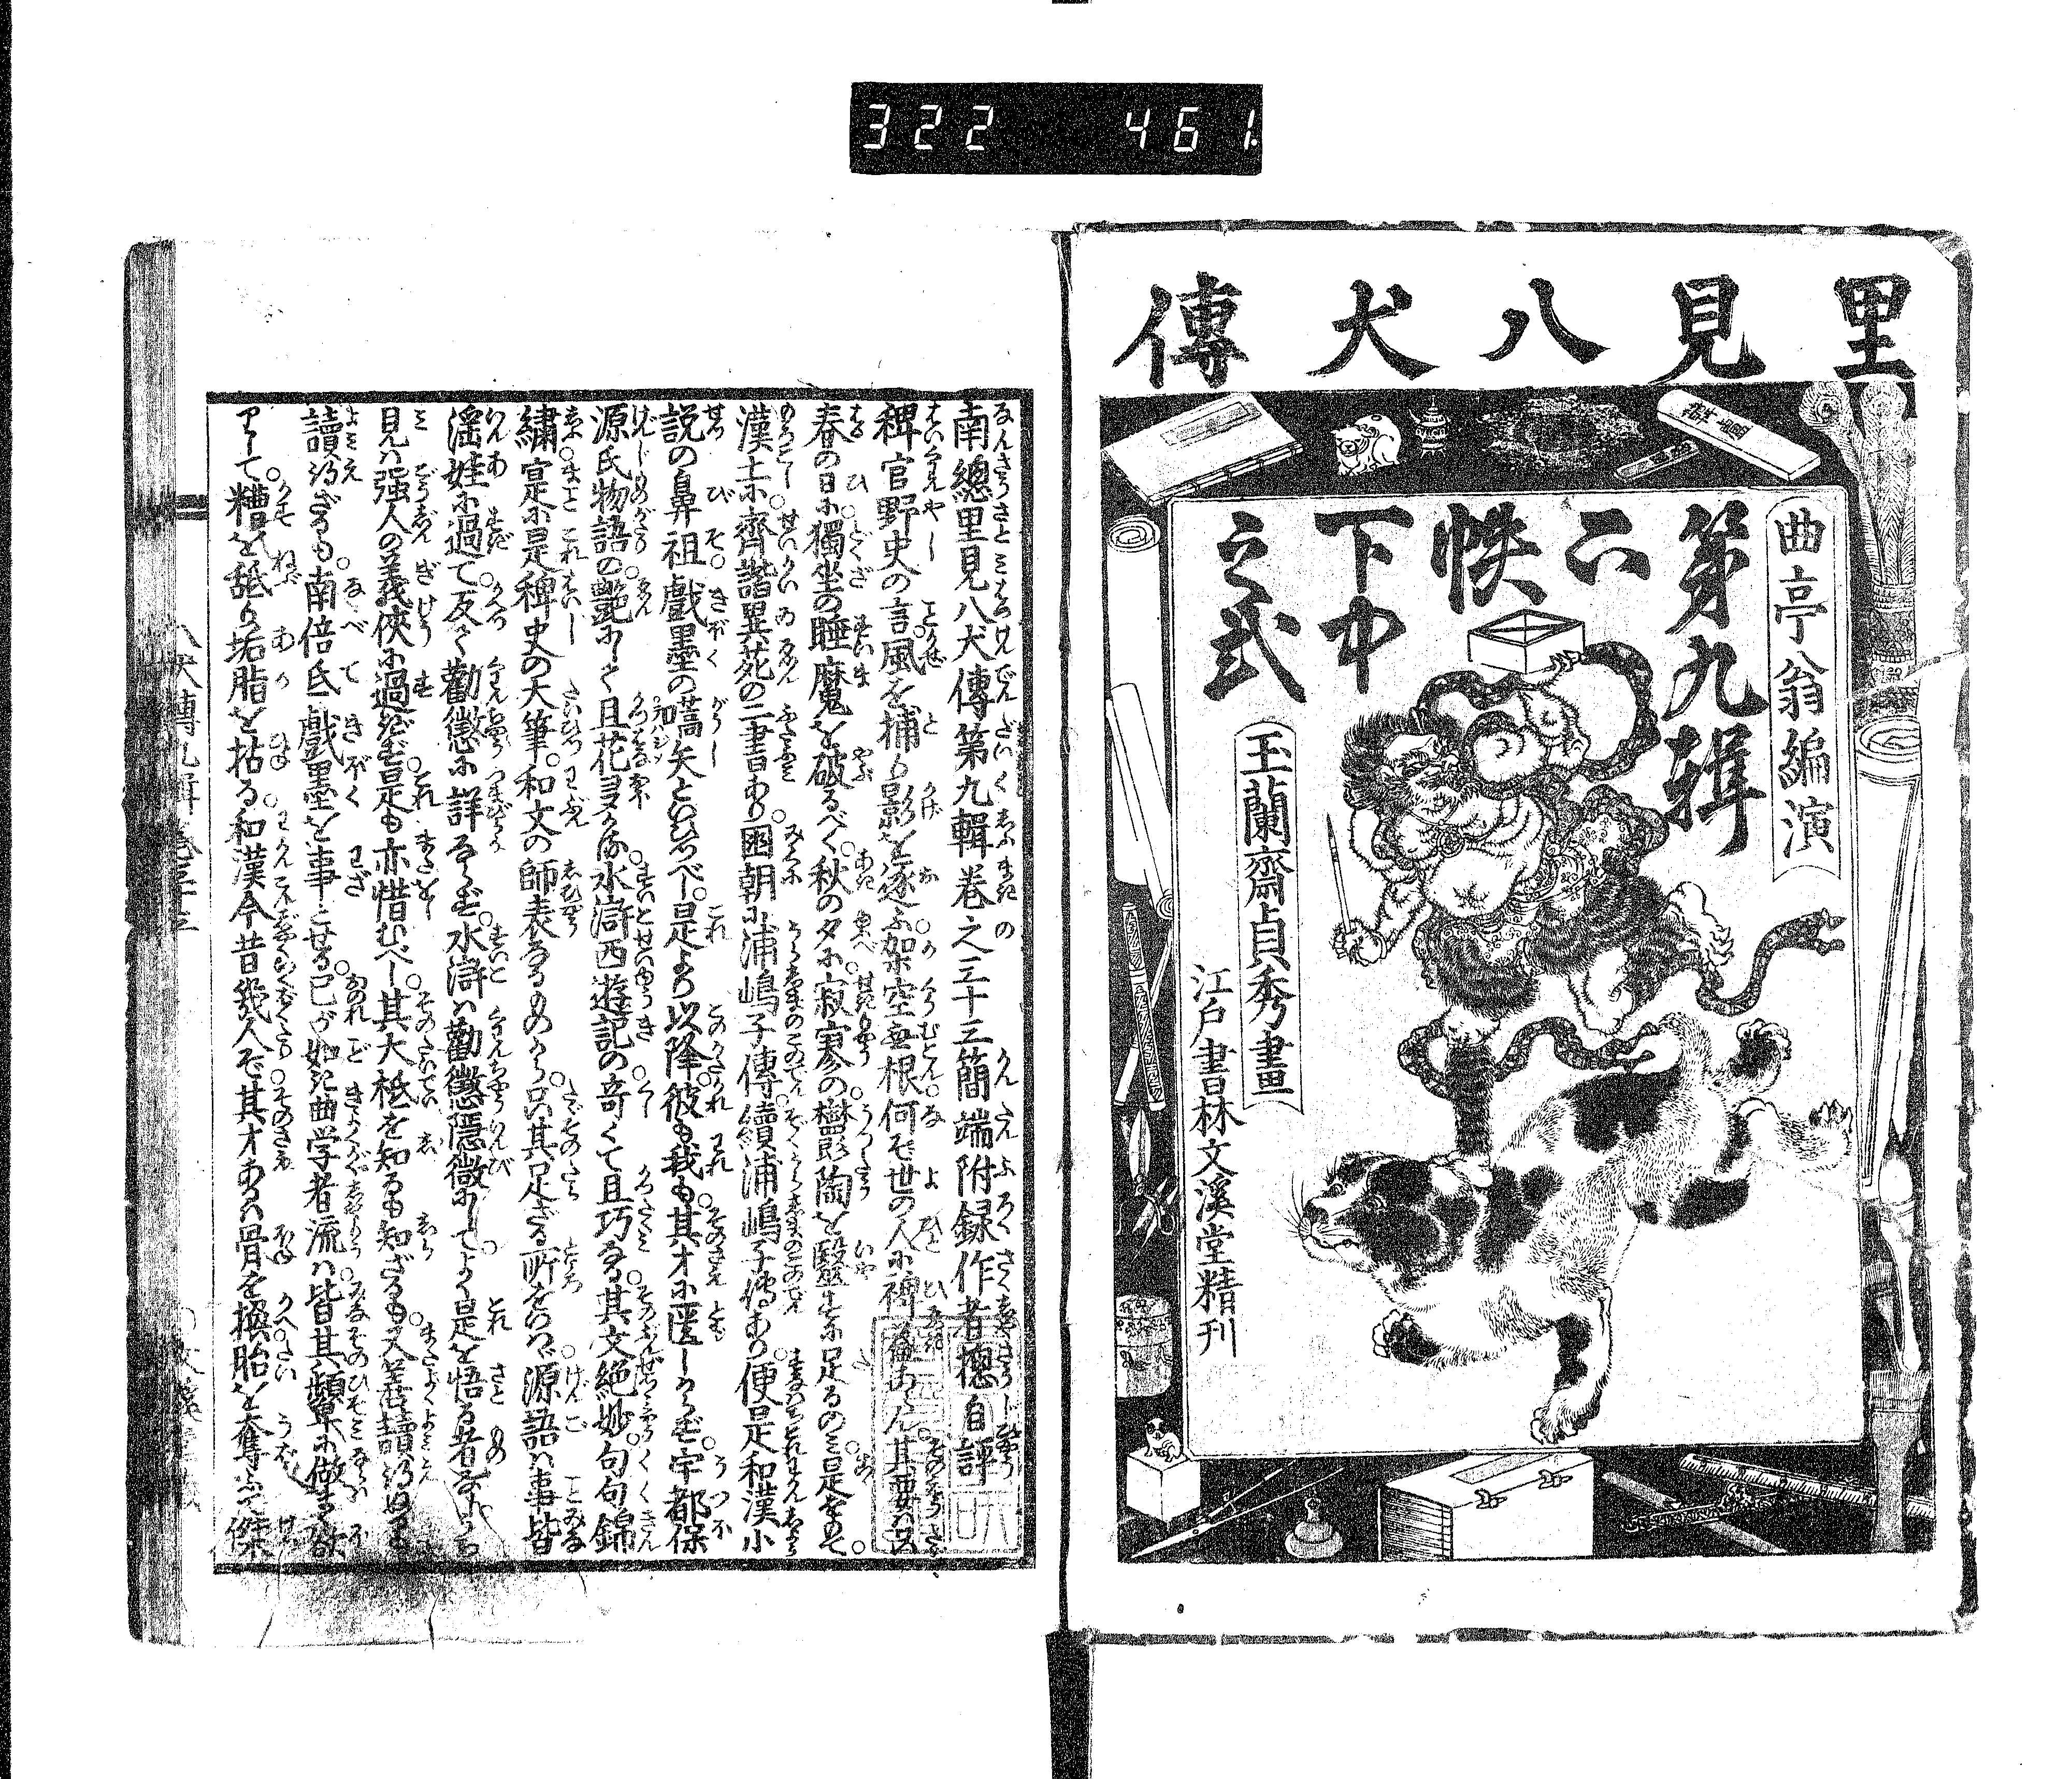 322 461
里見八犬傳
曲亭翁編演
第九輯
二帙
下中
之弍
玉蘭齋貞秀畫
江戸書林文溪堂精刊
南總里見八犬傳第九輯卷之三十三簡端附録作者總自評
稗官野史の言風を捕り影を逐ふ架空無根何ぞ世の人に裨益あらん其要は只
春の日に獨坐の睡魔を破るべく秋の夕に寂寥の欝陶を醫するに足るのミ是をもて
漢土に齊諧異苑の二書あり國朝に浦嶋子傳續浦嶋子傳あり便是和漢小
説の鼻祖戲墨の嚆矢といひつべし是より以降彼も我も其才に匱しからず宇都保
源氏物語の艶にして且花やかなる水滸西遊記の奇くて且巧なる其文絶妙句句錦
繍寔に是稗史の大筆和文の師表なるものから只其足ざる所をいはゞ源語は事皆
淫娃に過て反て勸懲に詳ならず水滸は勸懲隱微にしてよく是を悟る者なからん
見れは强人の義俠に過ざれば是も亦惜むべし其大柢を知るも知ざるも又善讀得ぬるも
讀得ざるも南倍氐戲墨を事とせる己が如き曲学者流は皆其顰に做まく欲
りして糟を舐り垢脂を拈る和漢今昔幾人ぞ其才あるは骨を換胎を奪ふて傑
八犬傳九輯卷三十三